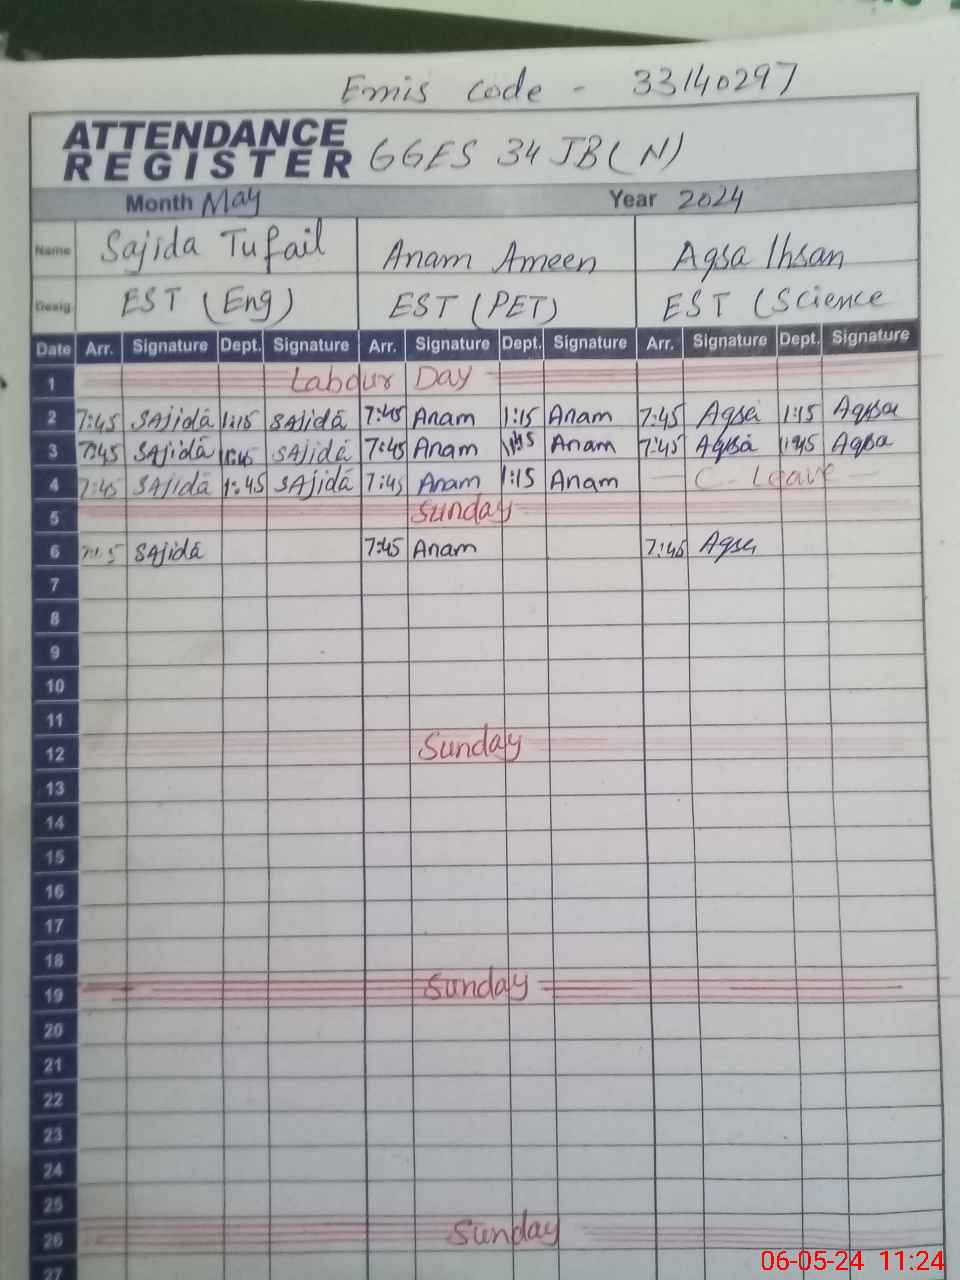 Emis Code - 33140297
ATTENDANCE
REGISTER GGES 34 JB(N)
Month May Year 2024
Name Sajida Tufail Anam Ameen Aqsa Ihsan
Desig. EST (Eng) EST (PET) EST (Science
Date Arr. Signature Dept. Signature Arr. Signature Dept. Signature Arr. Signature Dept. Signature
1 Labour Day
2 7:45 SAjidā 1:15 SAjidā 7:45 Anam 1:15 Anam 7:45 Aqsa 1:15 Aqsa
3 7:45 SAjidā SAjidā 7:45 Anam Anam 7:45 Aqsa Aqsa
4 7:45 SAjidā 1:45 SAjidā 7:45 Anam 1:15 Anam C. Leave
5 Sunday
6 SAjidā 7:45 Anam 7:45 Aqsa
7
8
9
10
11
12 Sunday
13
14
15
16
17
18
19 Sunday
20
21
22
23
24
25
26 Sunday
27
06-05-24 11:24